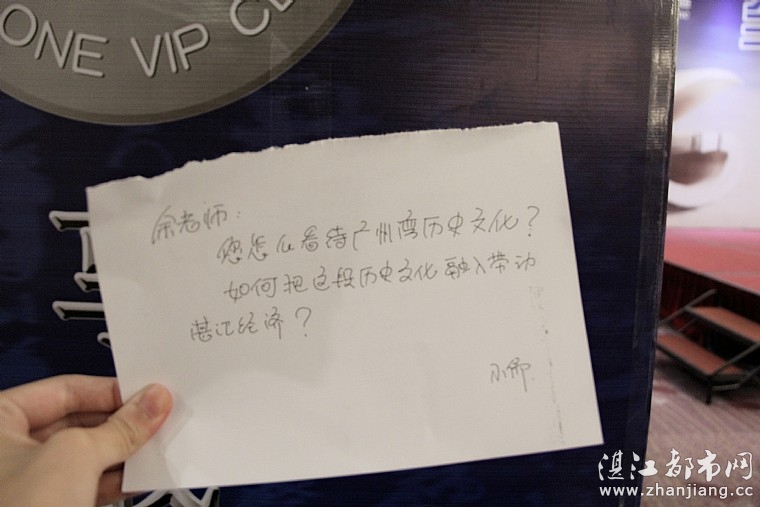 ONE VIP CL
余老师：
您怎么看待广州湾历史文化？
如何把这段历史文化融入带动
湛江经济？
湛江都市网
www.zhanjiang.cc